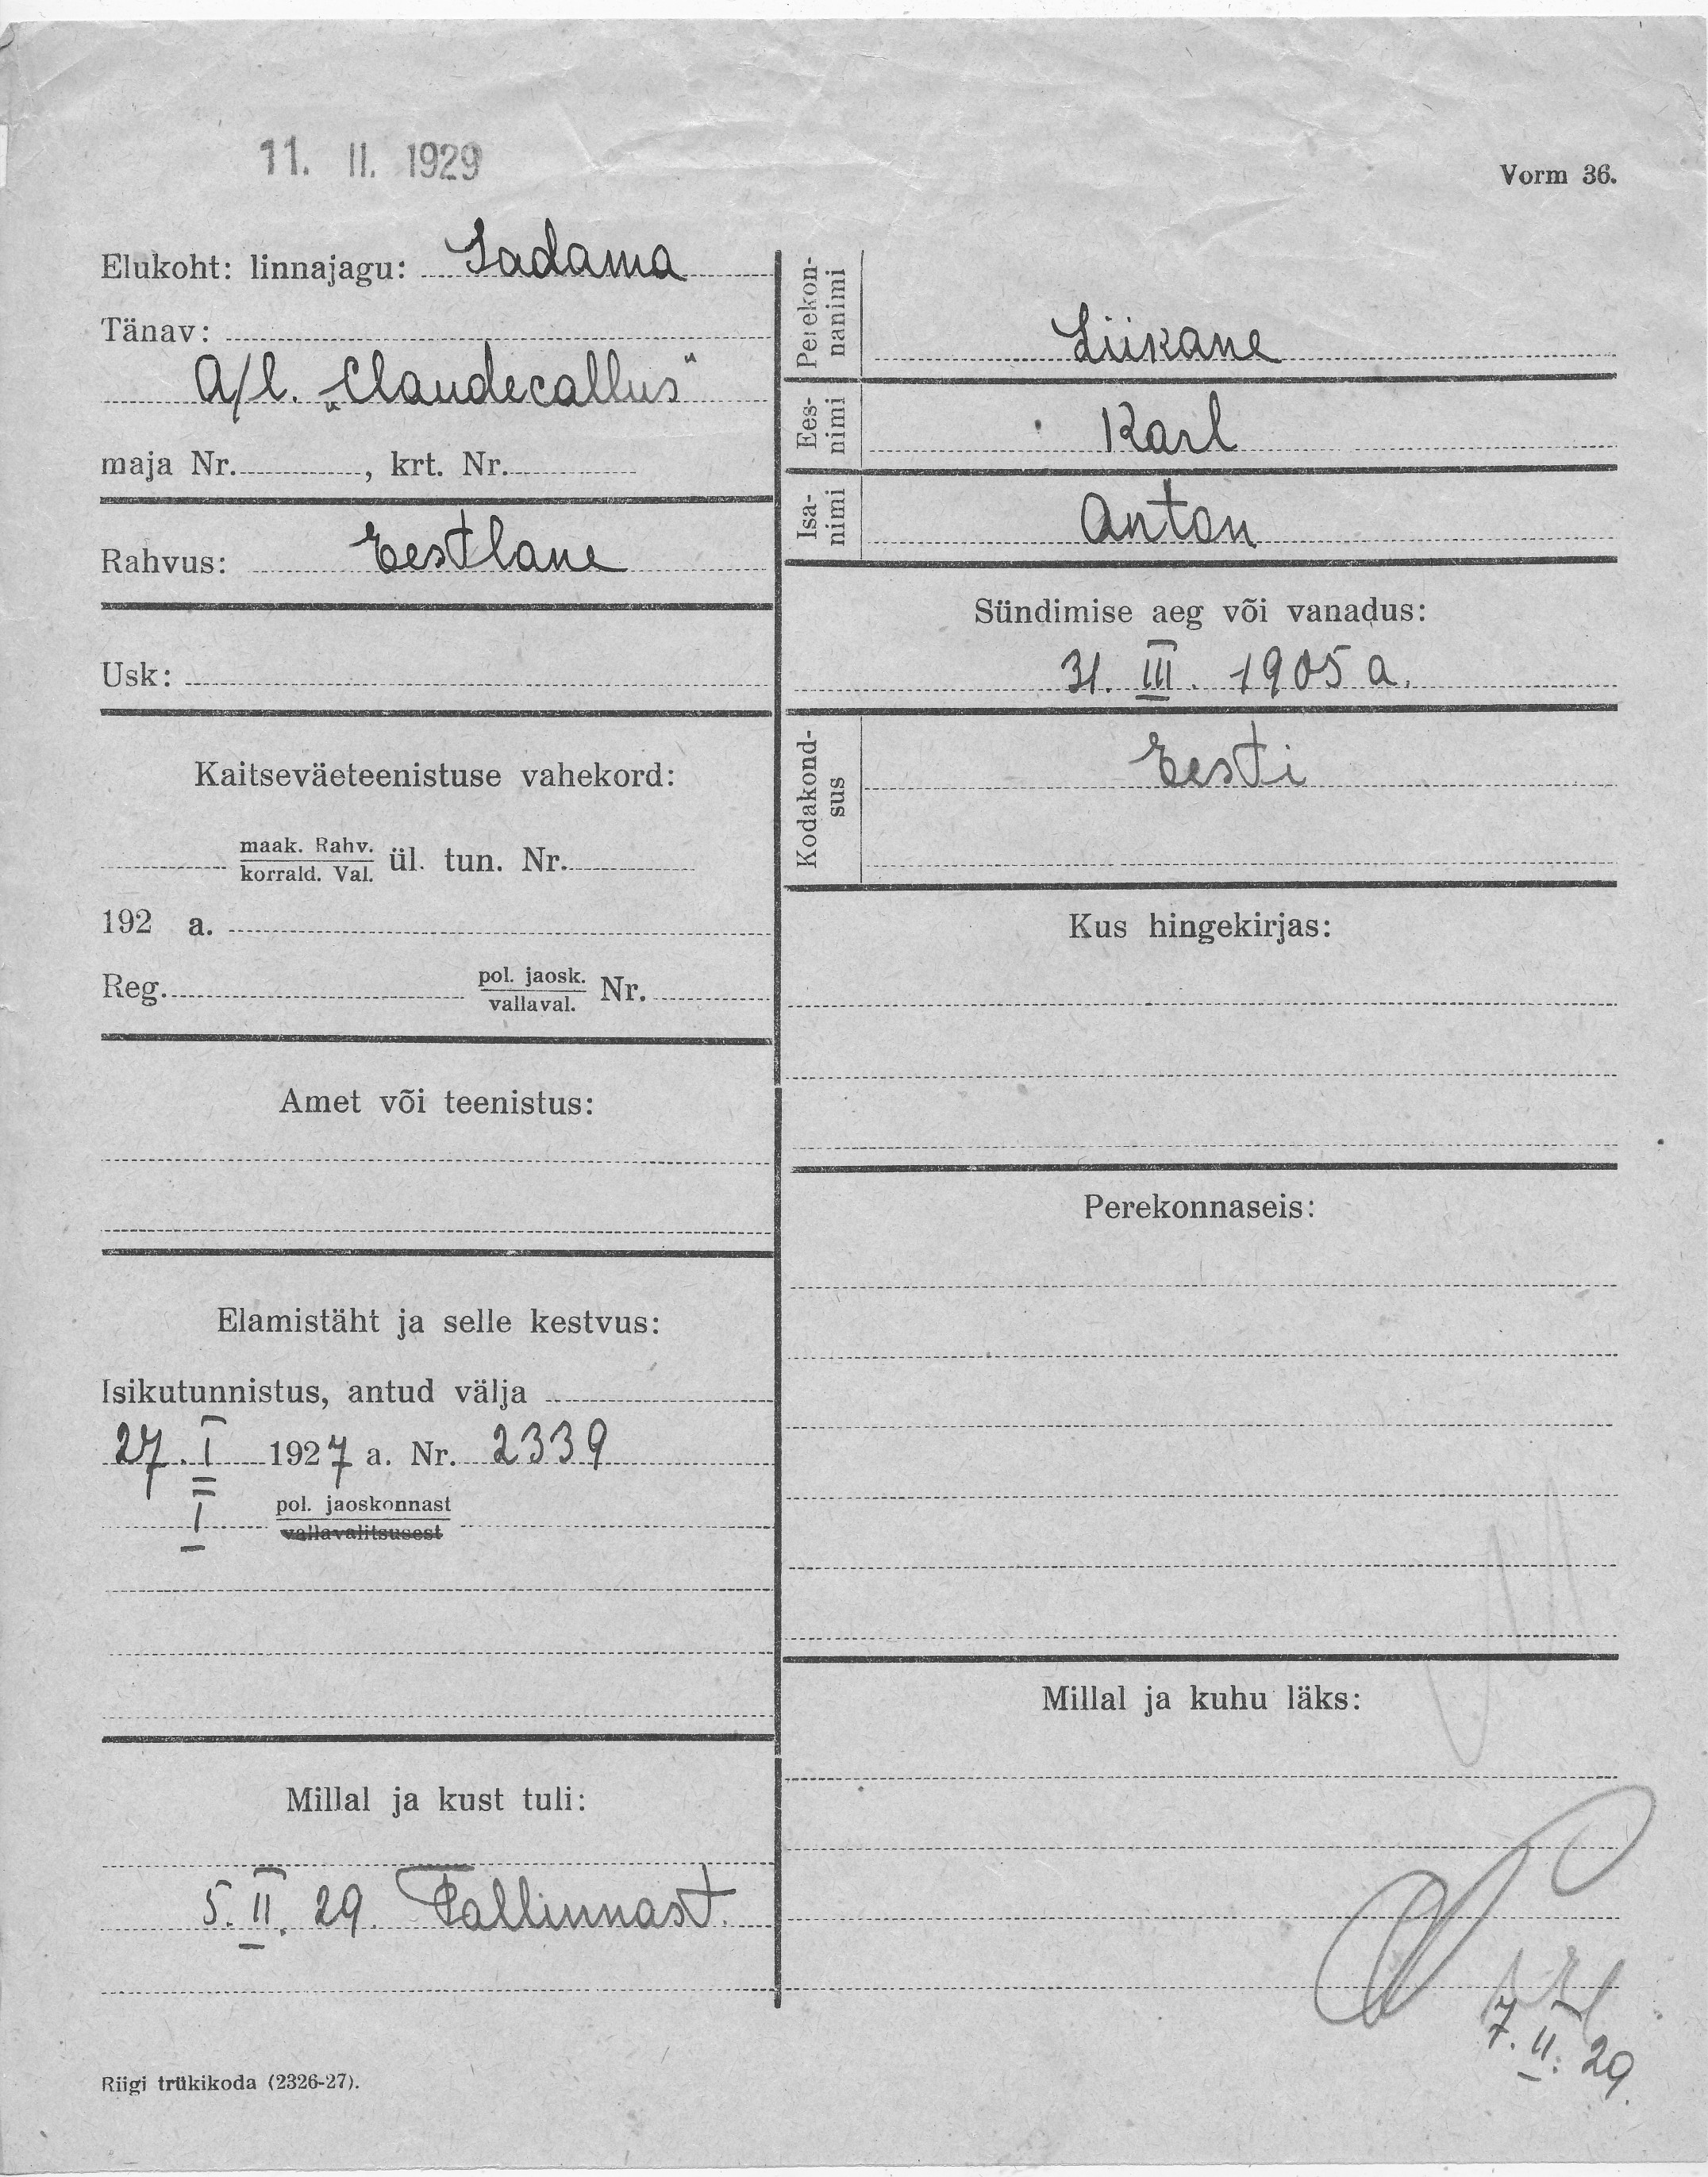 11. II. 1929
Vorm 36.
Elukoht: linnajagu: Sadama
Tänav:
A/l. „Claudecallus"
maja Nr. , krt. Nr.
Rahvus: Eestlane
Usk:
Kaitseväeteenistuse vahekord:
maak. Rahv.
korrald. Val.
ül. tun. Nr.
192 a.
Reg. pol. jaosk. Nr.
vallaval.
Amet või teenistus:
Elamistäht ja selle kestvus:
Isikutunnistus, antud välja
27. I 1927 a. Nr. 2339
I pol. jaoskonnast
vallavalitsusest
Millal ja kust tuli:
5. II. 29. Tallinnast.
Riigi trükikoda (2326-27).
Perekon-
nanimi
Liikane
Ees-
nimi
Karl
Isa-
nimi
Anton
Sündimise aeg või vanadus:
31. III. 1905 a.
Kodakond-
sus
Eesti
Kus hingekirjas:
Perekonnaseis:
Millal ja kuhu läks:
7. II. 29.